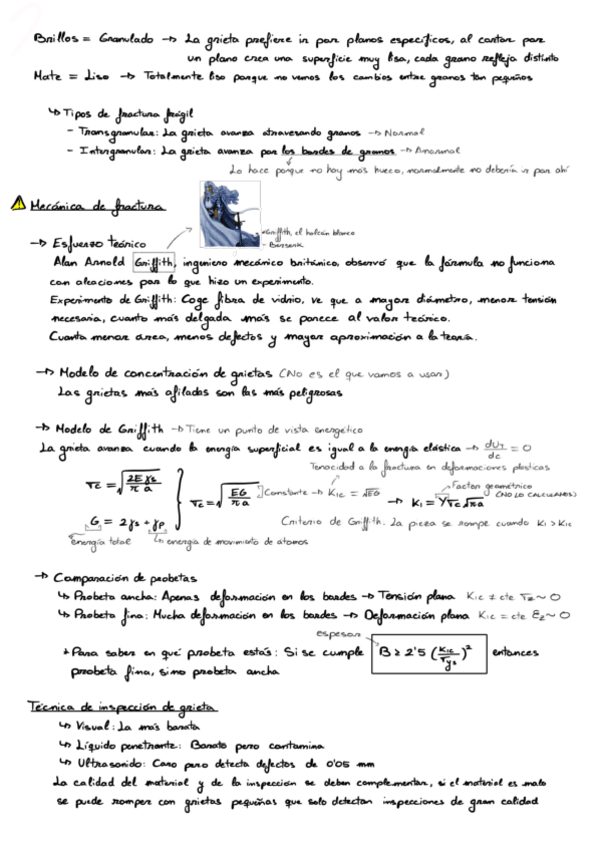 Brillos = Granulado → La grieta prefiere ir por planos específicos, al cortar por
un plano crea una superficie muy lisa, cada grano refleja distinto
Mate = Liso → Totalmente liso porque no vemos los cambios entre granos tan pequeños
↳ Tipos de fractura frágil
- Transgranular: La grieta avanza atravesando granos → Normal
- Intergranular: La grieta avanza por los bordes de granos → Anormal
Lo hace porque no hay más hueco, normalmente no debería ir por ahí
Mecánica de fractura
Griffith, el halcón blanco
- Berserk
→ Esfuerzo teórico
Alan Arnold Griffith, ingeniero mecánico británico, observó que la fórmula no funciona
con aleaciones por lo que hizo un experimento.
Experimento de Griffith: Coge fibra de vidrio, ve que a mayor diámetro, menor tensión
necesaria, cuanto más delgada más se parece al valor teórico.
Cuanta menor área, menos defectos y mayor aproximación a la teoría.
→ Modelo de concentración de grietas (No es el que vamos a usar)
Las grietas más afiladas son las más peligrosas
→ Modelo de Griffith → Tiene un punto de vista energético
La grieta avanza cuando la energía superficial es igual a la energía elástica → dU_T/dc = 0
Tenacidad a la fractura en deformaciones plásticas
σc = √(2Eγs/πa)
σc = √(EG/πa) ] Constante → K1c = √EG → K1 = Yσc√πa
Factor geométrico
(NO LO CALCULAMOS)
G = 2γs + γp
Criterio de Griffith. La pieza se rompe cuando K1 > K1c
energía total ↳ energía de movimiento de átomos
→ Comparación de probetas
↳ Probeta ancha: Apenas deformación en los bordes → Tensión plana K1c ≠ cte σz ~ 0
↳ Probeta fina: Mucha deformación en los bordes → Deformación plana K1c = cte εz ~ 0
espesor
* Para saber en qué probeta estás: Si se cumple B ≥ 2'5 (K1c/σys)² entonces
probeta fina, sino probeta ancha
Técnica de inspección de grieta
↳ Visual: La más barata
↳ Líquido penetrante: Barato pero contamina
↳ Ultrasonido: Caro pero detecta defectos de 0'05 mm
La calidad del material y de la inspección se deben complementar, si el material es malo
se puede romper con grietas pequeñas que solo detectan inspecciones de gran calidad